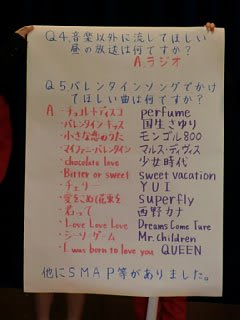 Q4.音楽以外に流してほしい
昼の放送は何ですか?
A.ラジオ
Q5.バレンタインソングでかけ
てほしい曲は何ですか?
A.・チョコレートディスコ perfume
・バレンタインキッス 国生さゆり
・小さな恋のうた モンゴル800
・マイファニーバレンタイン マルス・デイヴィス
・chocolate love 少女時代
・Bitter or sweet sweet vacation
・チェリー YUI
・愛をこめて花束を superfly
・君って 西野カナ
・Love Love Love Dreams Come Ture
・シーソーゲーム Mr.children
・I was born to love you QUEEN
他にSMAP等がありました。